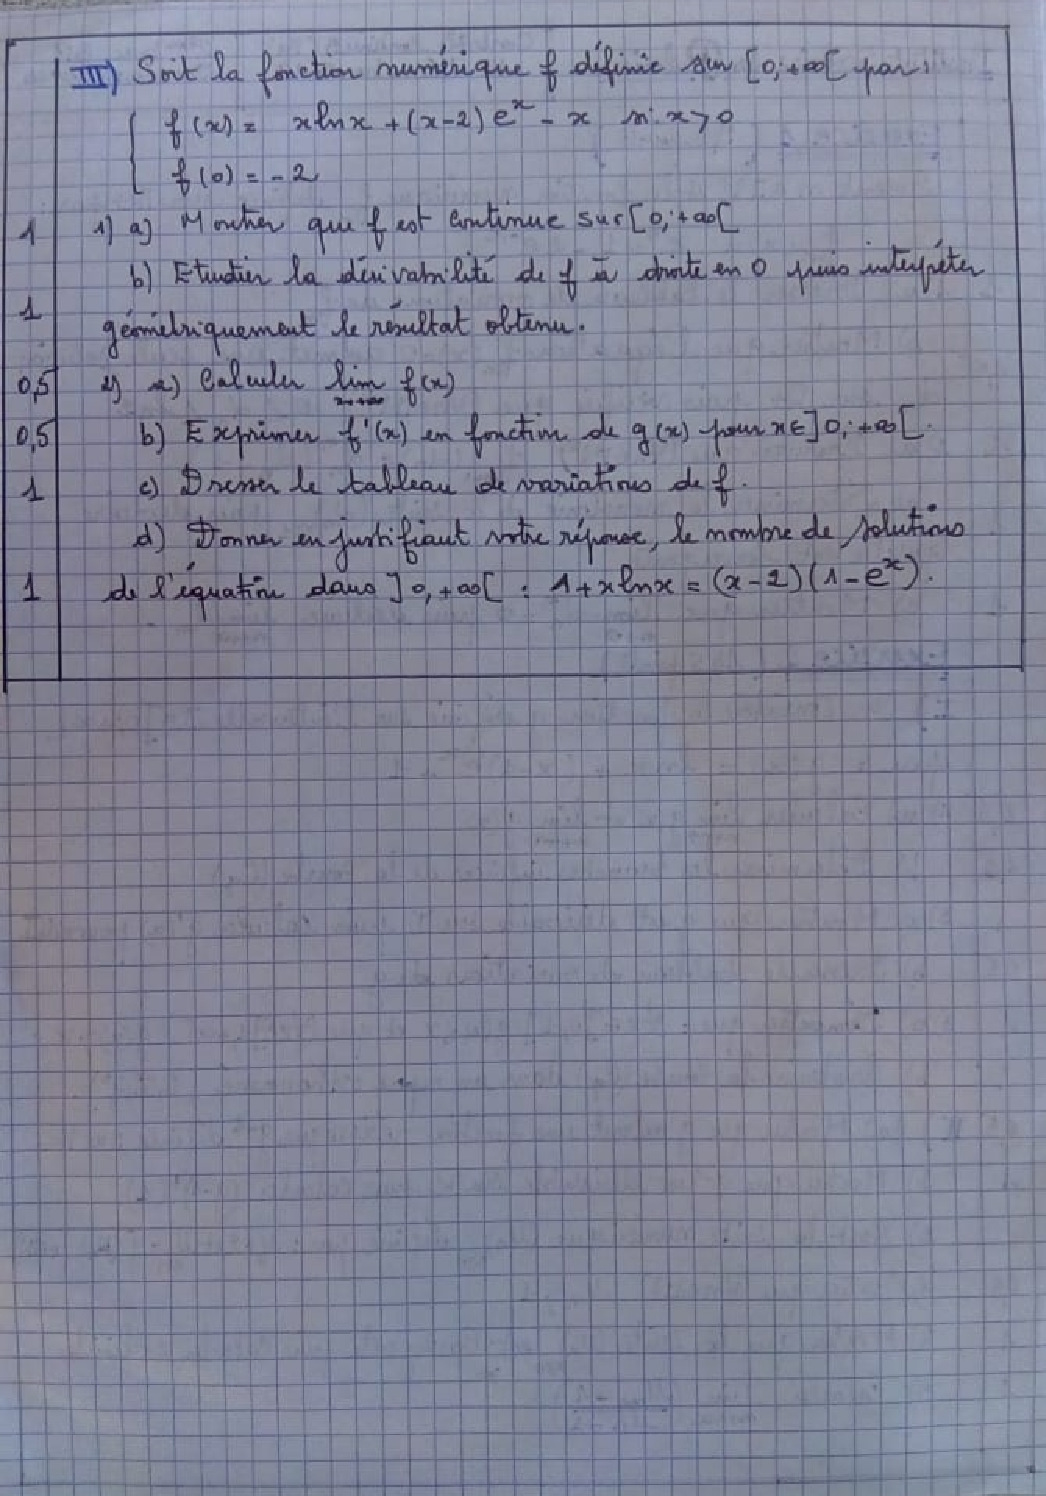 III) Soit la fonction numérique f définie sur [0,+∞[ par:
f(x) = xlnx + (x-2)e^x - x si x>0
f(0) = -2
1 1) a) Montrer que f est continue sur [0,+∞[
b) Etudier la dérivabilité de f à droite en 0 puis interpréter
1 géométriquement le résultat obtenu.
0,5 2) a) Calculer lim f(x)
x→+∞
0,5 b) Exprimer f'(x) en fonction de g(x) pour x∈]0,+∞[.
1 c) Dresser le tableau de variations de f.
d) Donner en justifiant votre réponse, le nombre de solutions
1 de l'équation dans ]0,+∞[ : 1+xlnx = (x-2)(1-e^x).